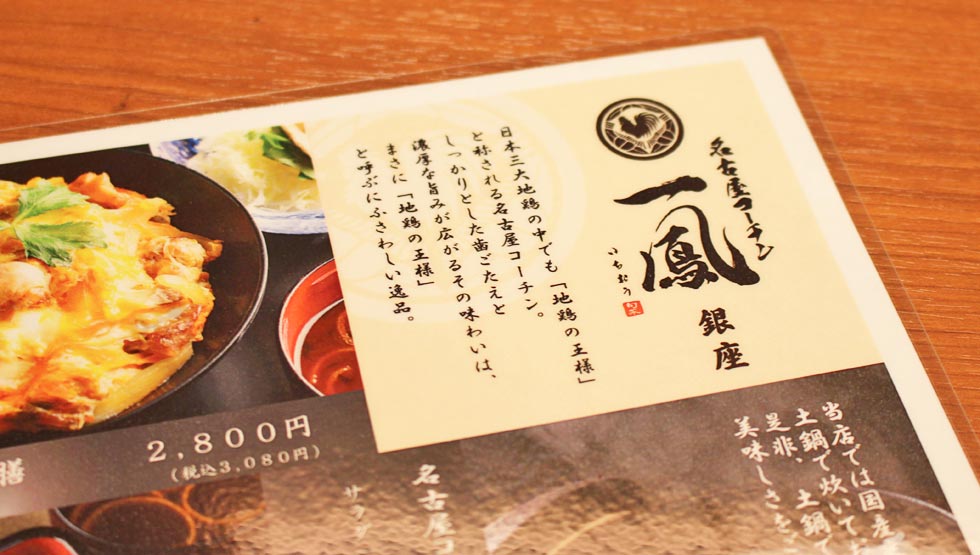 名古屋コーチン
一鳳
いちおう
銀座
日本三大地鶏の中でも「地鶏の王様」
と称される名古屋コーチン。
しっかりとした歯ごたえと
濃厚な旨みが広がるその味わいは、
まさに「地鶏の王様」
と呼ぶにふさわしい逸品。
2,800円
(税込3,080円)
膳
当店では国産
土鍋で炊いて
是非、土鍋で
美味しさを
名古屋コ
サラダ